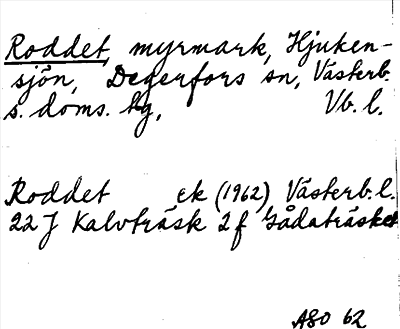 Roddet, myrmark, Hjuken-
sjön, Degerfors sn, Västerb.
s. doms. hg, Vb. l.
Roddet ek (1962) Västerb. l.
22 J Kalvträsk 2 f Gådaträsket
ASO 62